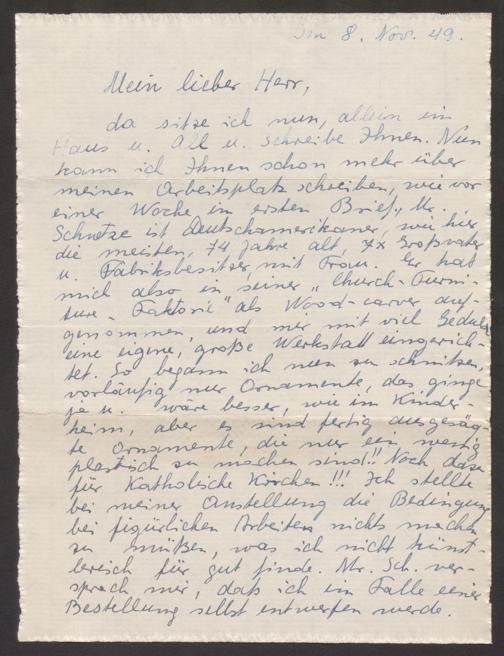 Am 8. Nov. 49.
Mein lieber Herr,
da sitze ich nun, allein im
Haus u. All u. schreibe Ihnen. Nun
kann ich Ihnen schon mehr über
meinen Arbeitsplatz schreiben, wie vor
einer Woche im ersten Brief. Mr.
Schutze ist Deutschamerikaner, wie hier
die meisten, 74 Jahre alt, 7x Großvater
u. Fabriksbesitzer, mit Frau. Er hat
mich also in seiner "Church-Furni-
ture-Faktorie" als Wood-carver auf-
genommen, und mir mit viel Geduld
eine eigene, große Werkstatt eingerich-
tet. So begann ich nun zu schnitzen,
vorläufig nur Ornamente, das ginge
ja u. wäre besser, wie im Kinder-
heim, aber es sind fertig ausgesäg-
te Ornamente, die nur ein wenig
plastisch zu machen sind!! Noch dazu
für Katholische Kirchen!!! Ich stellte
bei meiner Anstellung die Bedingung
bei figürlichen Arbeiten nichts machen
zu müßen, was ich nicht künst-
lerisch für gut finde. Mr. Sch. ver-
sprach mir, daß ich im Falle einer
Bestellung selbst entwerfen werde.